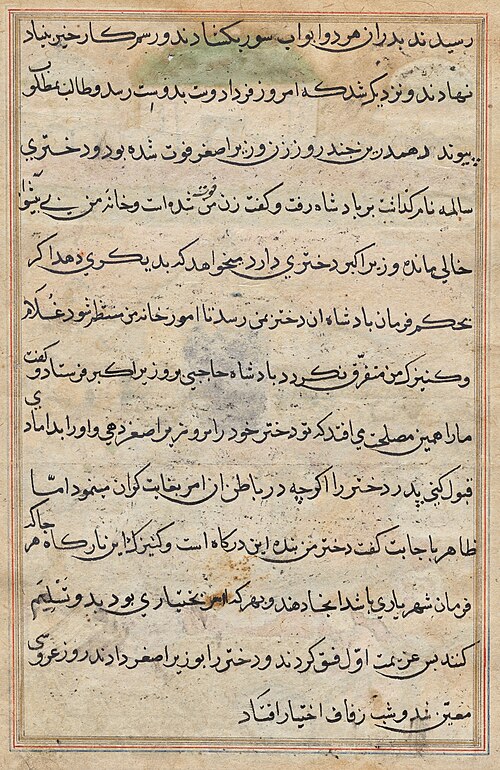 رسیدند پدران هر دو ابواب سور بکشادند و رسم کار خیر بنیاد
نهادند و نزدیک شد که امروز فردا دوست بدوست رسد و طالب بمطلوب
پیوند دهمدرین چند روز زن وزیر اصغر فوت شده بود و دختری
سالمه نام گذاشت بر پادشاه رفت و گفت زن من فوت شده است و خانهٔ من بی پیشوا
خالی مانده وزیر اکبر دختری دارد میخواهد که بدیگری دهد اگر
بحکم فرمان پادشاه ان دختر بمن رسد تا امور خانه من منتظم شود غلام
و کنیزک من متفرق نگردد پادشاه حاجبی بر وزیر اکبر فرستاد و گفت
مارا همین مصلحت می افتد که تو دختر خود را بوزیر اصغر دهی و او را بدامادی
قبول کنی پدر دختر را اگرچه در باطن ان امر بغایت گران مینمود امّا
ظاهر باجابت گفت دختر من بنده این درکاه است و کنیزک این بارکاه هر جا که
فرمان شهریاری باشد انجا دهند و بهر که امر بختیاری بود بدو تسلیم
کنند پس عزیمت اوّل فسق کردند و دختر را بوزیر اصغر دادند روز عروسی
معین شد و شب زفاف اختیار افتاد